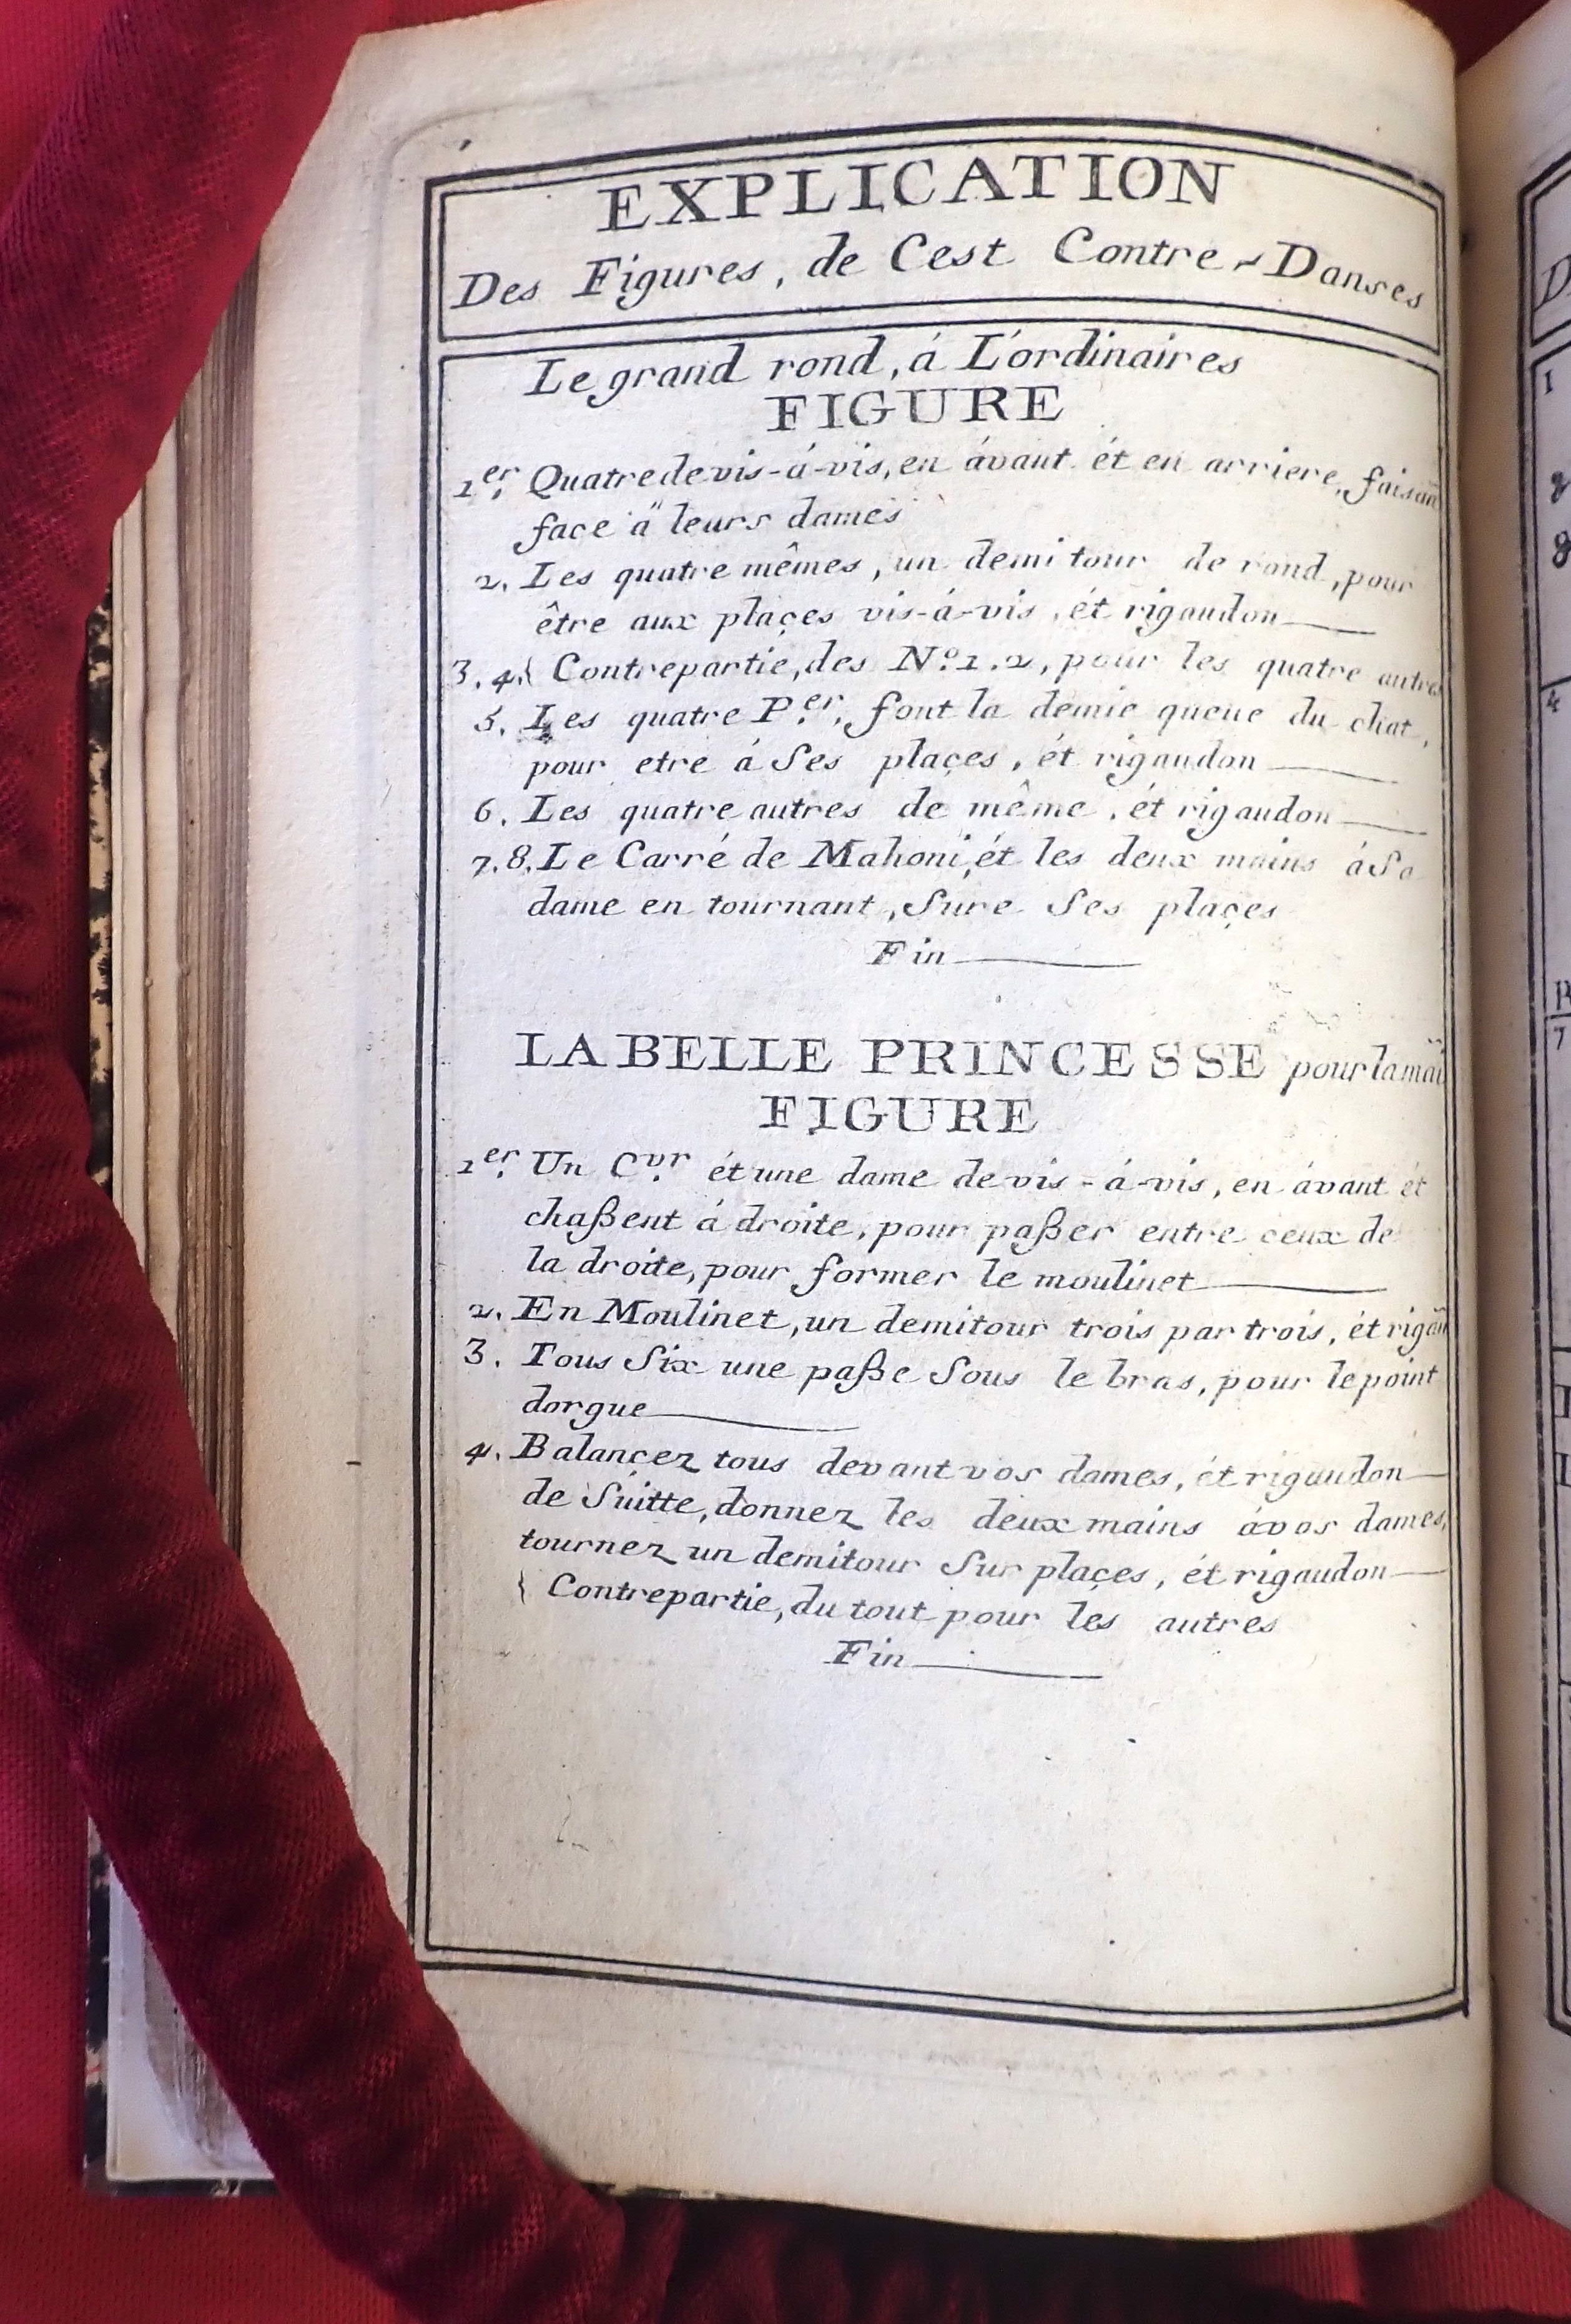 EXPLICATION
Des Figures, de Cest Contre-Danses
Le grand rond, á L'ordinaires
FIGURE
1er. Quatre de vis-á-vis, en ávant ét en arriere, faisan̄
face á leurs dames
2. Les quatre mêmes, un demi tour de rond, pour
être aux plaçes vis-á-vis, ét rigaudon
3. 4. Contrepartie, des No. 1. 2, pour les quatre autres
5. Les quatre Per. font la demie queue du chat,
pour etre á Ses plaçes, ét rigaudon
6. Les quatre autres de même, ét rigaudon
7. 8. Le Carré de Mahoni, ét les deux mains á Sa
dame en tournant, Sure Ses plaçes
Fin
LA BELLE PRINCESSE pour la mai
FIGURE
1er. Un Cvr. ét une dame de vis-á-vis, en ávant ét
chaßent á droite, pour paßer entre ceux de
la droite, pour former le moulinet
2. En Moulinet, un demitour trois par trois, ét rigau
3. Tous Six une paße Sous le bras, pour le point
dorgue
4. Balançez tous devant vos dames, ét rigaudon
de Suitte, donnez les deux mains á vos dames,
tournez un demitour Sur plaçes, ét rigaudon
Contrepartie, du tout pour les autres
Fin
D
1
g
g
4
7